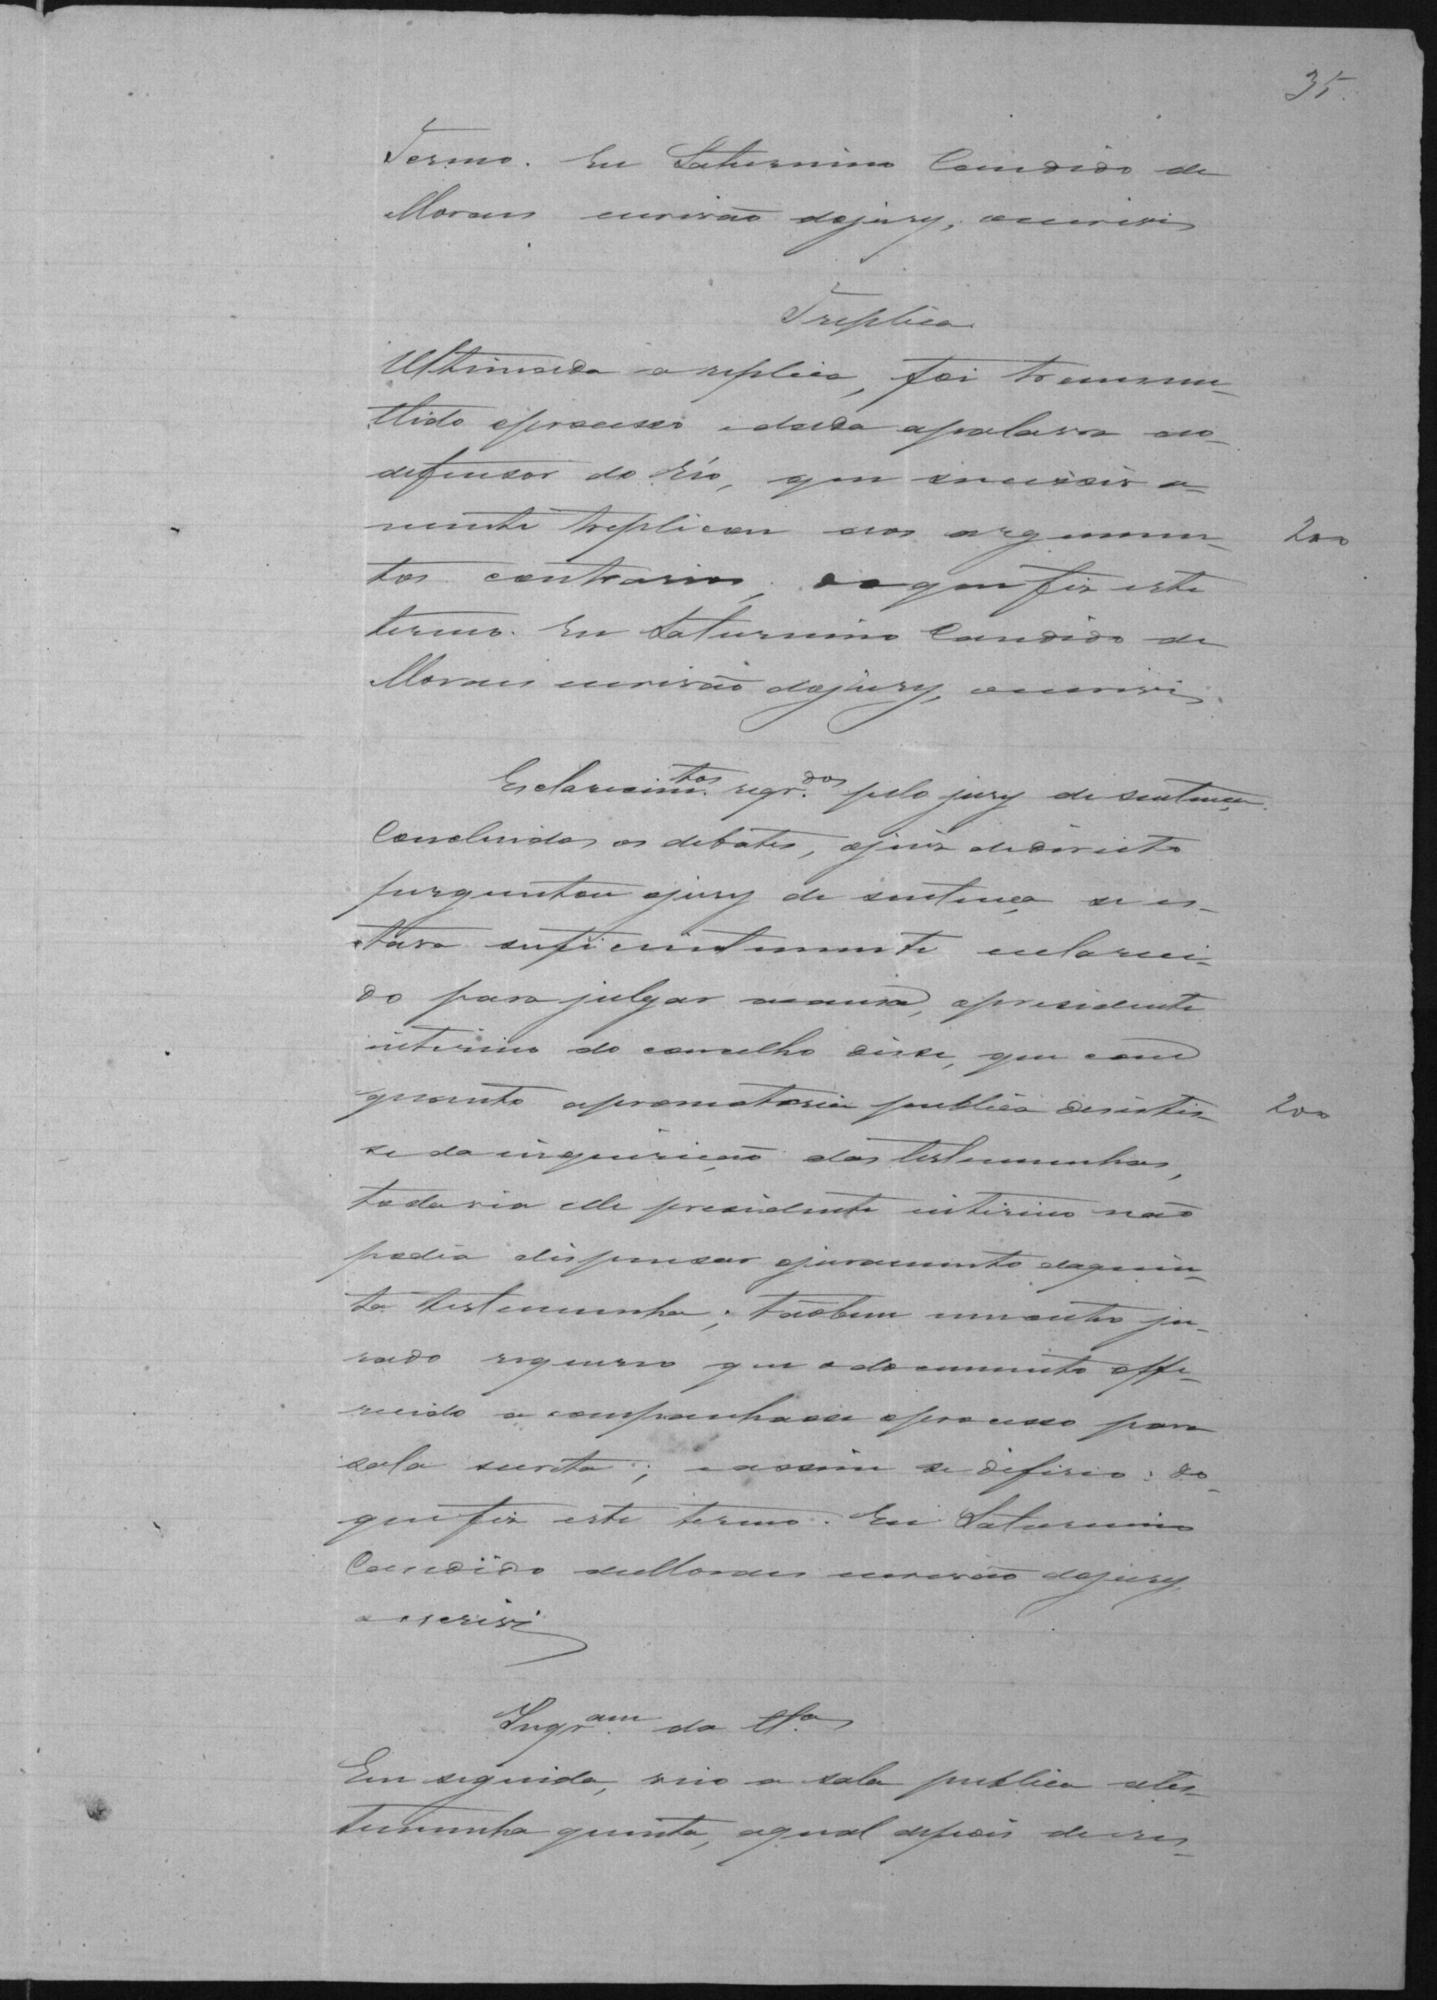 35.
Termo. Eu Saturnino Candido de
Moraes escrivão dojury, oescrivi
Treplica
Ultimada a replica, foi transme-
ttido oprocesso e dada apalavra ao
defensor do réo, que
treplicou aos argumen- 200
tos contrarios, doque fiz este
termo. Eu Saturnino Candido de
Moraes escrivão dojury, oescrivi.
Esclarecim.tos reqr.dos pelo jury de sentença.
Concluidos os debates, ojuiz dedireito
perguntou ojury de sentença se es-
tava suficientemente esclareci-
do para julgar acausa, opresidente
interino do concelho disse, que com
quanto apromotoria publica desistis- 200
se da inquirição das testemunhas,
todavia elle presidente interino não
podia dispensar ojuramento daquin-
ta testemunha; tãobem umoutro ju-
rado requereo que odocumento offe-
recido acompanhasse oprocesso para
sala secreta; eassim se diferio: do
quefiz este termo. Eu Saturnino
Candido deMoraes escrivão dojury
oescrivi
Inqr.am da tt.a
Em seguida, vino a sala publica ates-
temunha quinta, aqual depois deres-